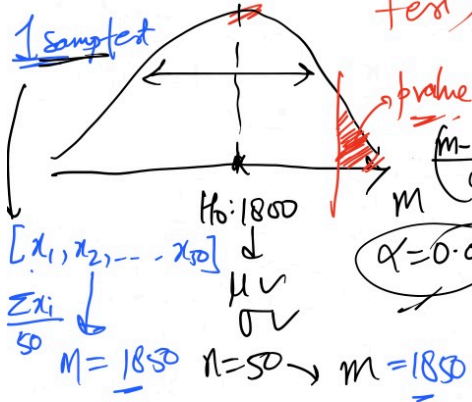 test,
1 samp test
p value
m-
H₀: 1800
m
[x₁, x₂, ... x₅₀]
μ ✓
α = 0.0
Σxi
50
σ ✓
M = 1850
n = 50 → m = 1850